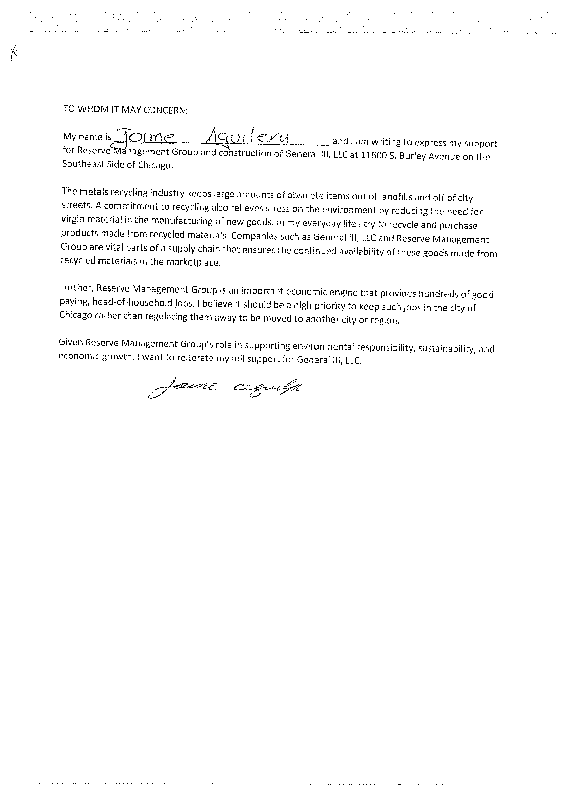 TO WHOM IT MAY CONCERN:
My name is Jaime Aguilera and I am writing to express my support
for Reserve Management Group and construction of General III, LLC at 11600 S. Burley Avenue on the
Southeast Side of Chicago.
The metals recycling industry keeps large amounts of obsolete items out of landfills and off of city
streets. A commitment to recycling also relieves stress on the environment by reducing the need for
virgin material in the manufacturing of new goods. In my everyday life I try to recycle and purchase
products made from recycled materials. Companies such as General III, LLC and Reserve Management
Group are vital parts of a supply chain that ensures the continued availability of these goods made from
recycled materials in the marketplace.
Further, Reserve Management Group is an important economic engine that provides hundreds of good
paying, head-of-household jobs. I believe it should be a high priority to keep such jobs in the city of
Chicago rather than regulating them away to be moved to another city or region.
Given Reserve Management Group's role in supporting environmental responsibility, sustainability, and
economic growth, I want to reiterate my full support for General III, LLC.
Jaime Aguilera